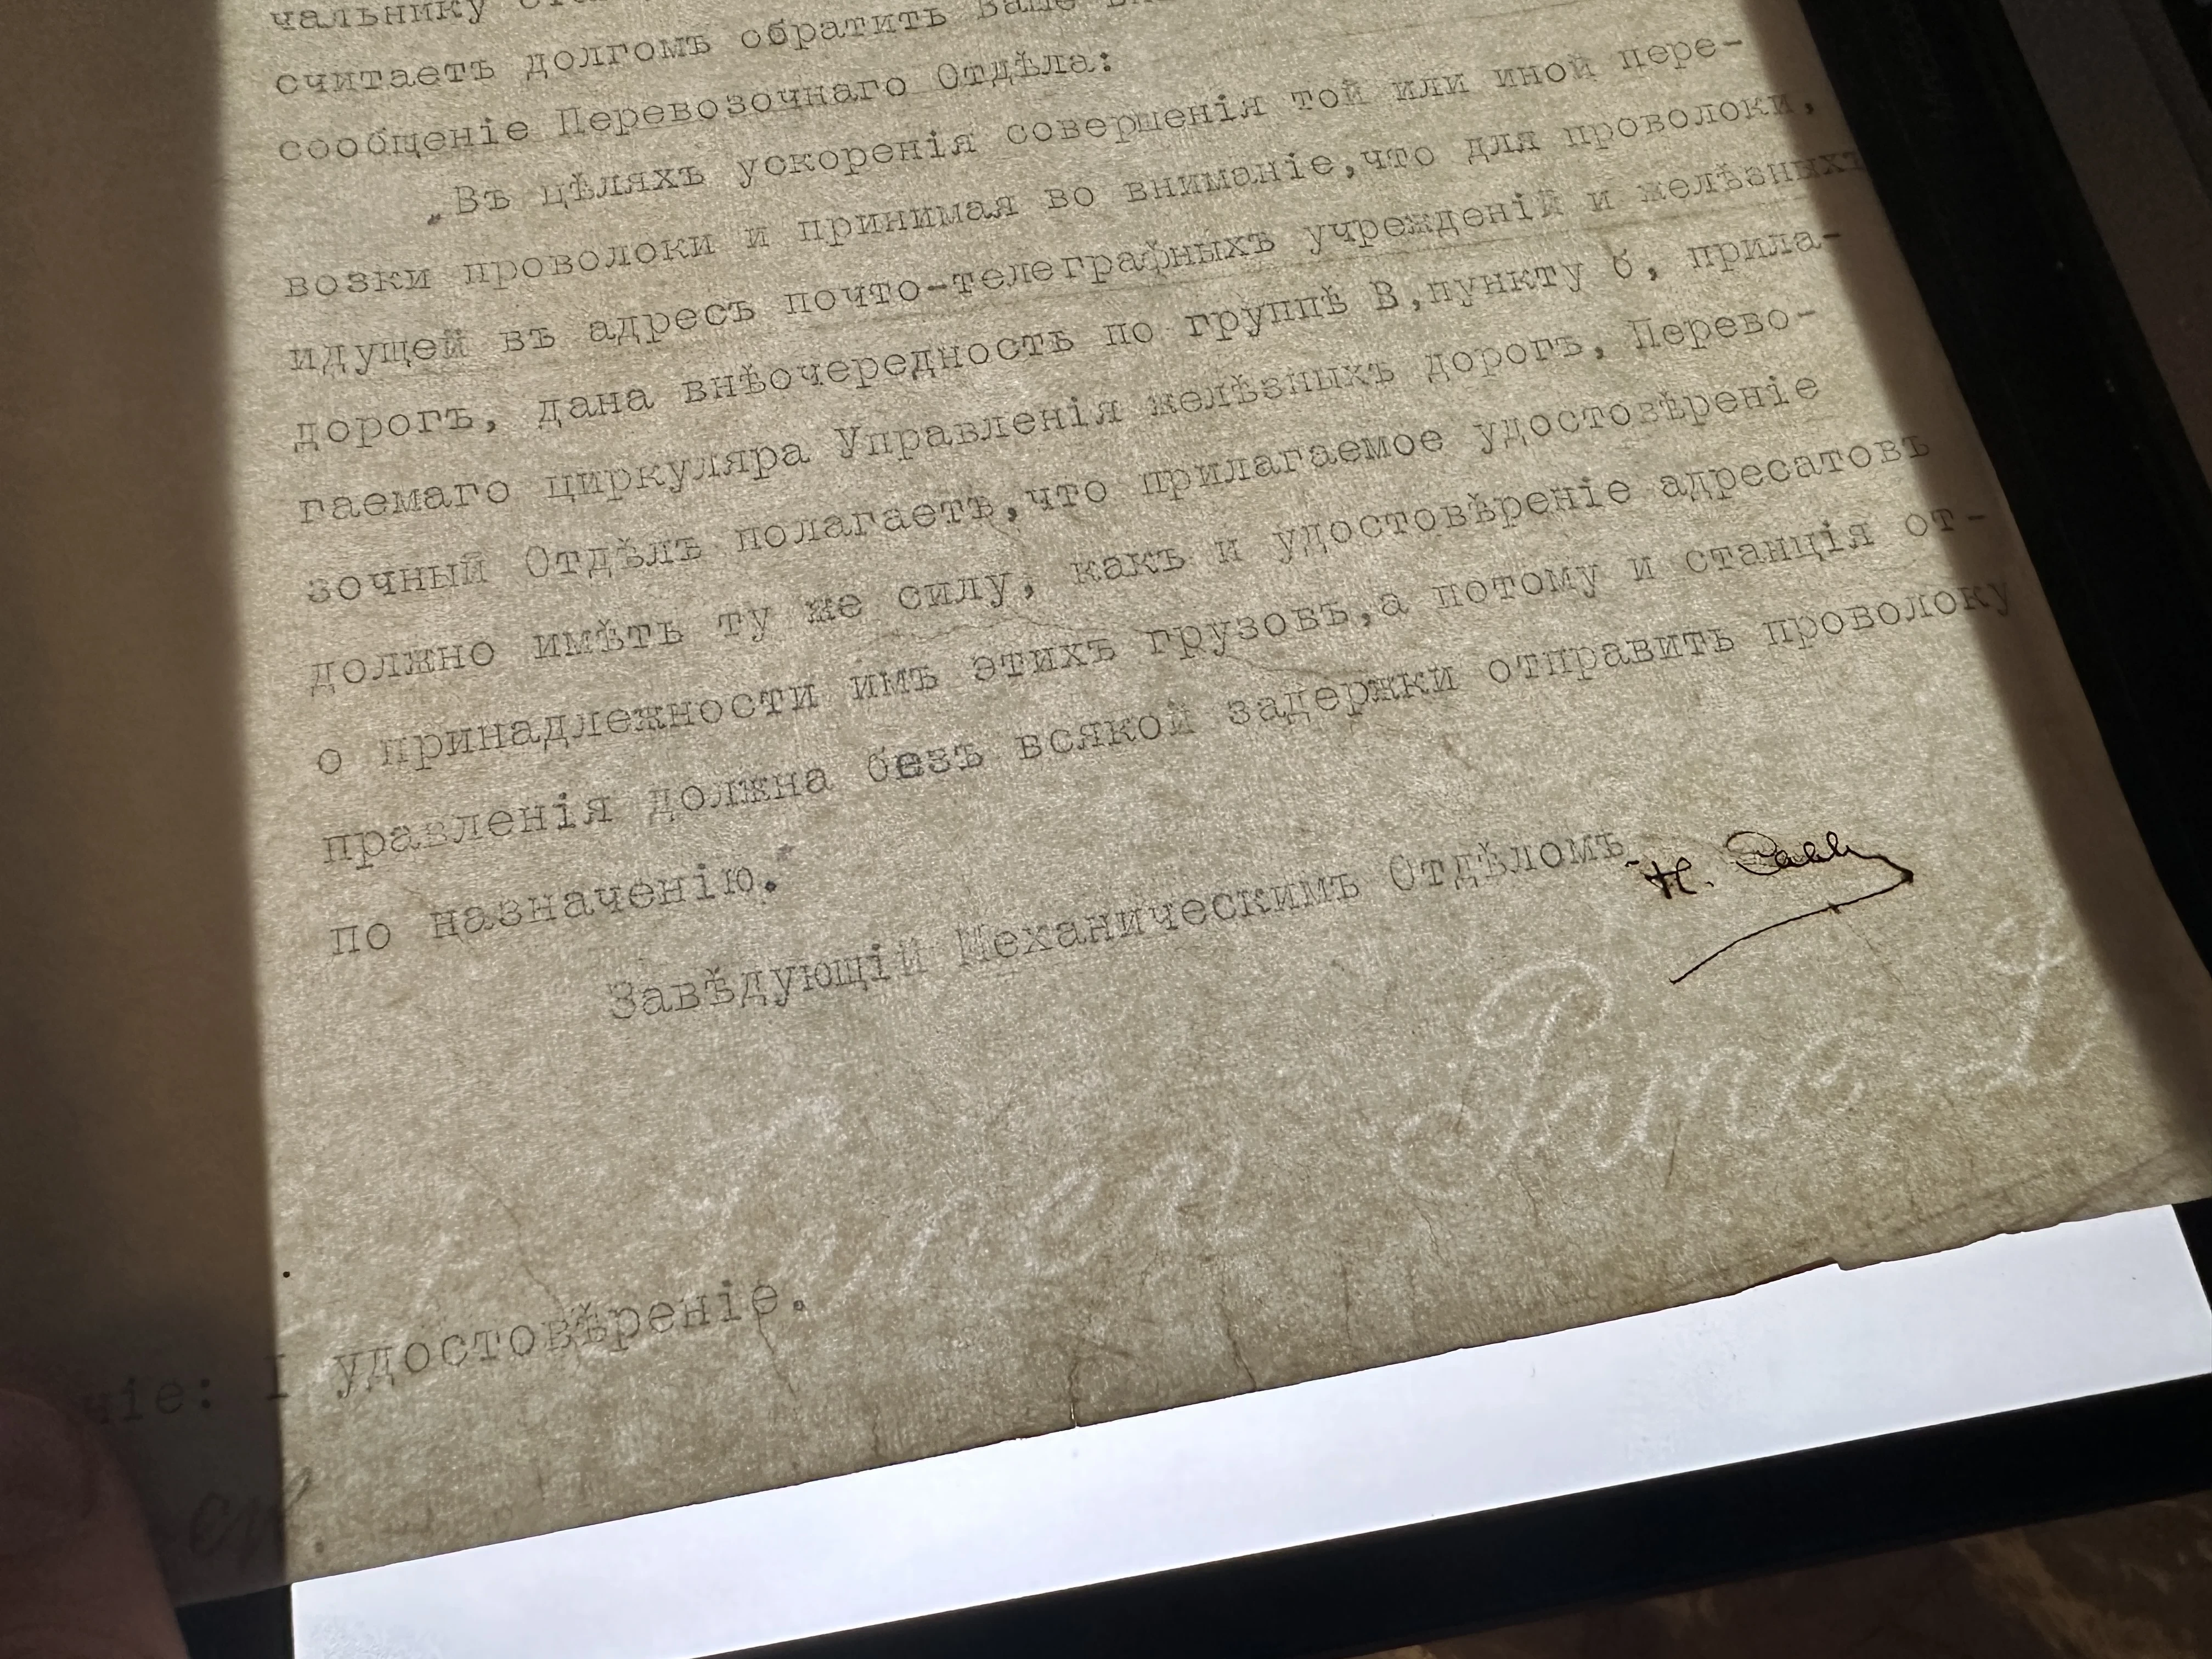 чальнику
считаетъ долгомъ обратить Ваше
сообщеніе Перевозочнаго Отдѣла:
„Въ цѣляхъ ускоренія совершенія той или иной пере-
возки проволоки и принимая во вниманіе,что для проволоки,
идущей въ адресъ почто-телеграфныхъ учрежденій и желѣзныхъ
дорогъ, дана внѣочередность по группѣ В,пункту б, прила-
гаемаго циркуляра Управленія желѣзныхъ дорогъ, Перево-
зочный Отдѣлъ полагаетъ,что прилагаемое удостовѣреніе
должно имѣть ту же силу, какъ и удостовѣреніе адресатовъ
о принадлежности имъ этихъ грузовъ,а потому и станція от-
правленія должна безъ всякой задержки отправить проволоку
по назначенію."
Завѣдующій Механическимъ Отдѣломъ
ніе: I удостовѣреніе.